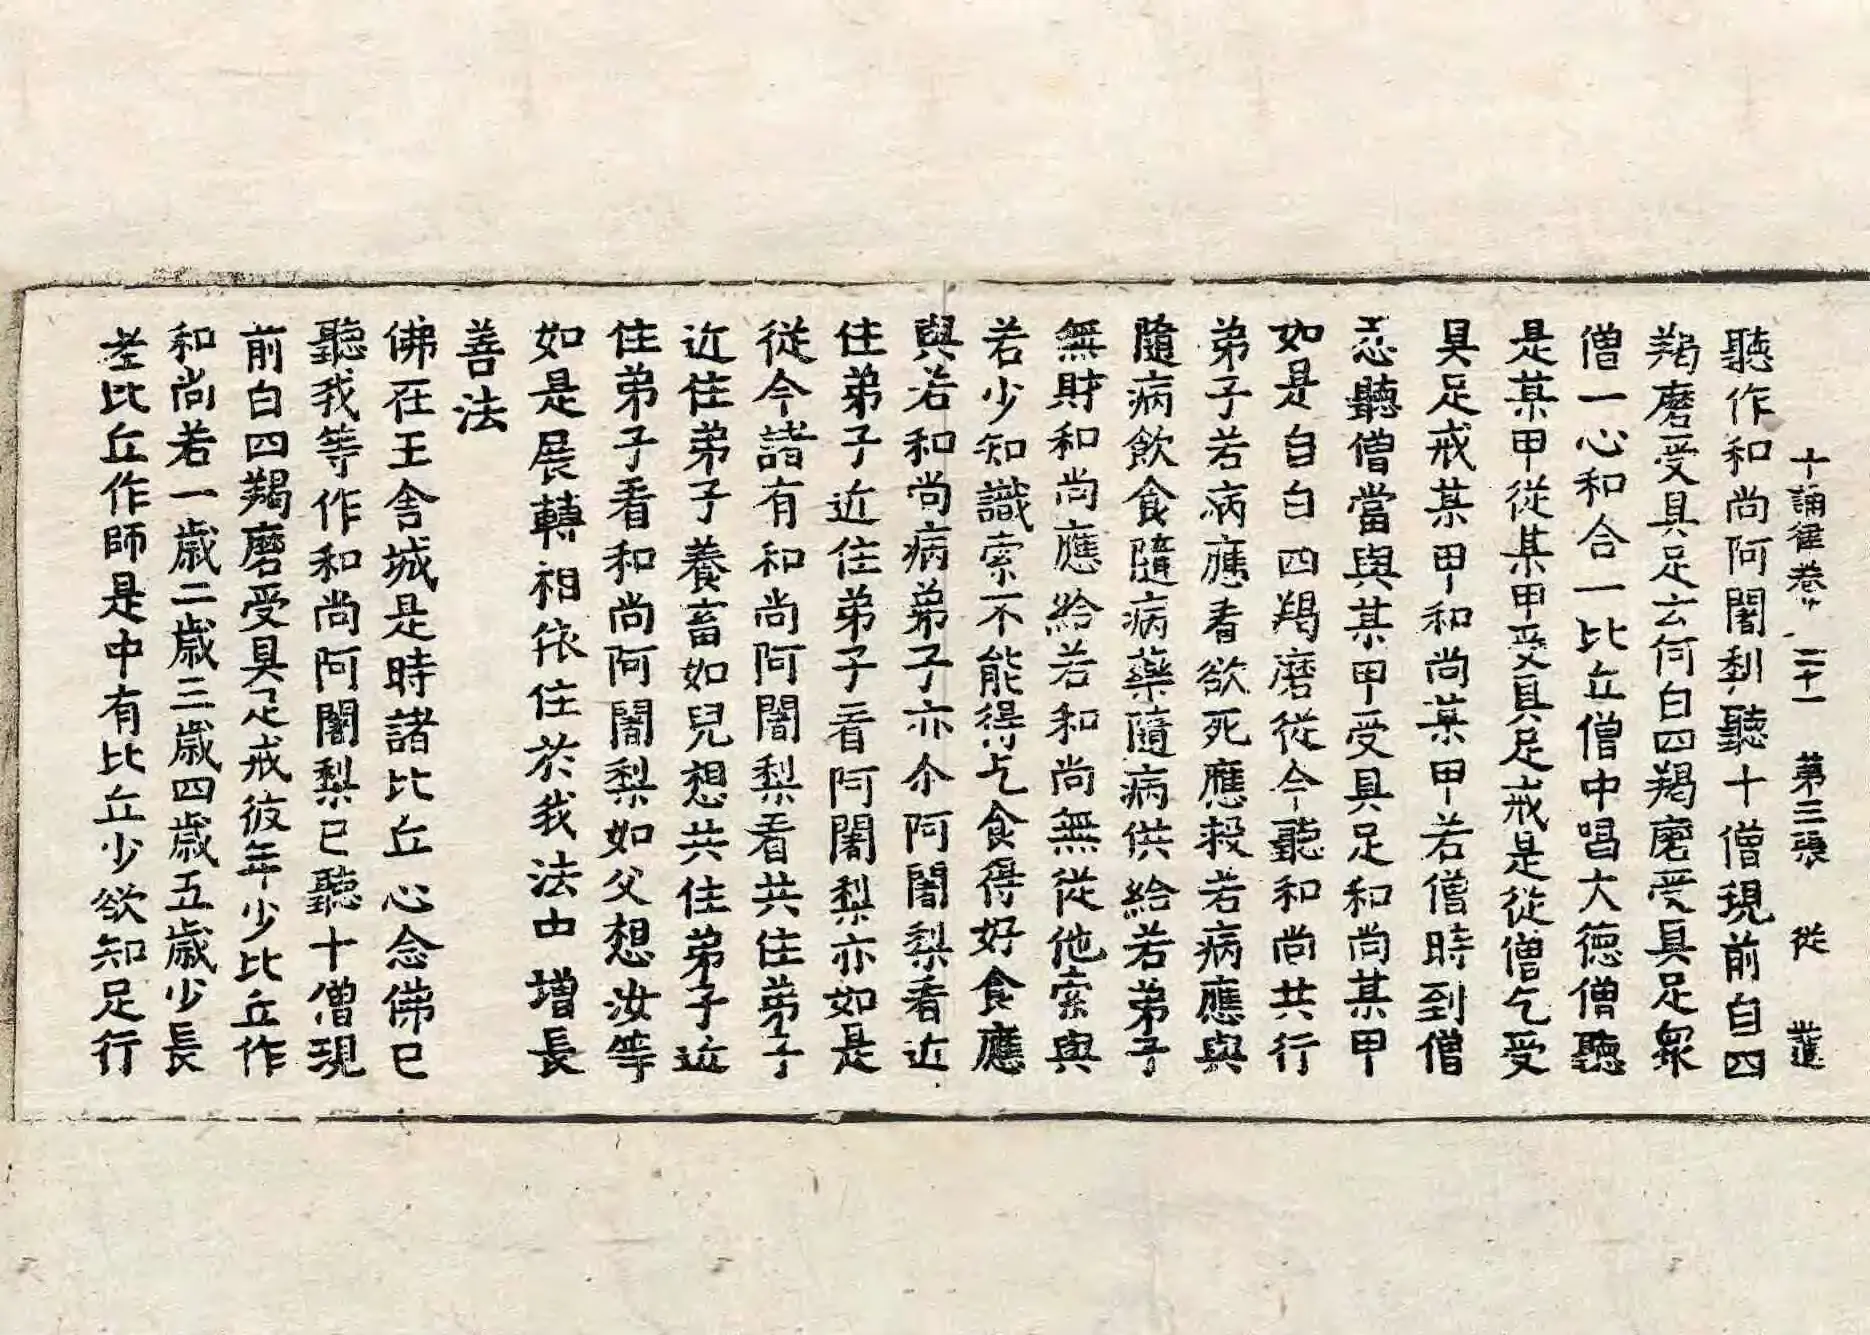 十誦律卷第二十一 第三張 從
聽作和尚阿闍梨聽十僧現前白四
羯磨受具足云何白四羯磨受具足衆
僧一心和合一比丘僧中唱大德僧聽
是某甲從某甲受具足戒是從僧乞受
具足戒某甲和尚某甲若僧時到僧
忍聽僧當與某甲受具足和尚某甲
如是白白四羯磨從今聽和尚共行
弟子若病應看欲死應救若病應與
隨病飲食隨病藥隨病供給若弟子
無財和尚應給若和尚無從他索與
若少知識索不能得乞食得好食應
與若和尚病弟子亦尒阿闍梨看近
住弟子近住弟子看阿闍梨亦如是
從今諸有和尚阿闍梨看共住弟子
近住弟子養畜如兒想共住弟子近
住弟子看和尚阿闍梨如父想汝等
如是展轉相依住於我法中增長
善法
佛在王舍城是時諸比丘心念佛已
聽我等作和尚阿闍梨已聽十僧現
前白四羯磨受具足戒彼年少比丘作
和尚若一歲二歲三歲四歲五歲少長
老比丘作師是中有比丘少欲知足行